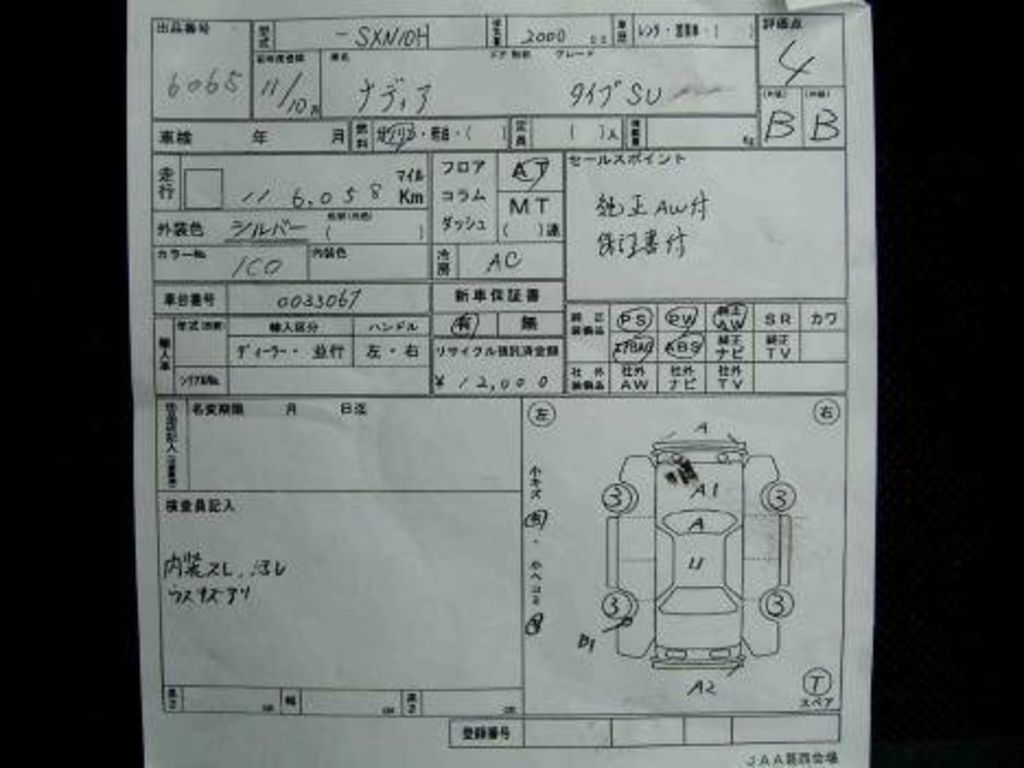 出品番号
6065
型式
-SXN10H
2000 cc
車歴
レンタ・営業車・( )
評価点
4
初年度登録
11/10月
車名
ナディア
ドア形状
グレード
タイプSU
B B
車検 年 月
燃料
ガソリン・軽油・( )
定員
( )人
積載量
kg
走行
116,058
マイル
Km
フロア
コラム
ダッシュ
AT
MT
( )速
セールスポイント
純正AW付
保証書付
外装色
シルバー
( )
カラーNo.
1C0
内装色
冷房
AC
車台番号
0033067
新車保証書
有 無
輸入車
輸入区分
ハンドル
ディーラー・並行
左・右
リサイクル預託済金額
¥12,000
純正装備品
PS PW 純正AW SR カワ
エアBAG ABS 純正ナビ 純正TV
社外装備品
社外AW 社外ナビ 社外TV
名変期限 月 日迄
検査員記入
内装スレ、汚レ
ウスキズアリ
左
右
小キズ 有・小ヘコミ 有
A
A1
A
U
3 3
3 3
B1
A2
T
スペア
長さ cm 幅 cm 高さ cm
登録番号
JAA葛西会場